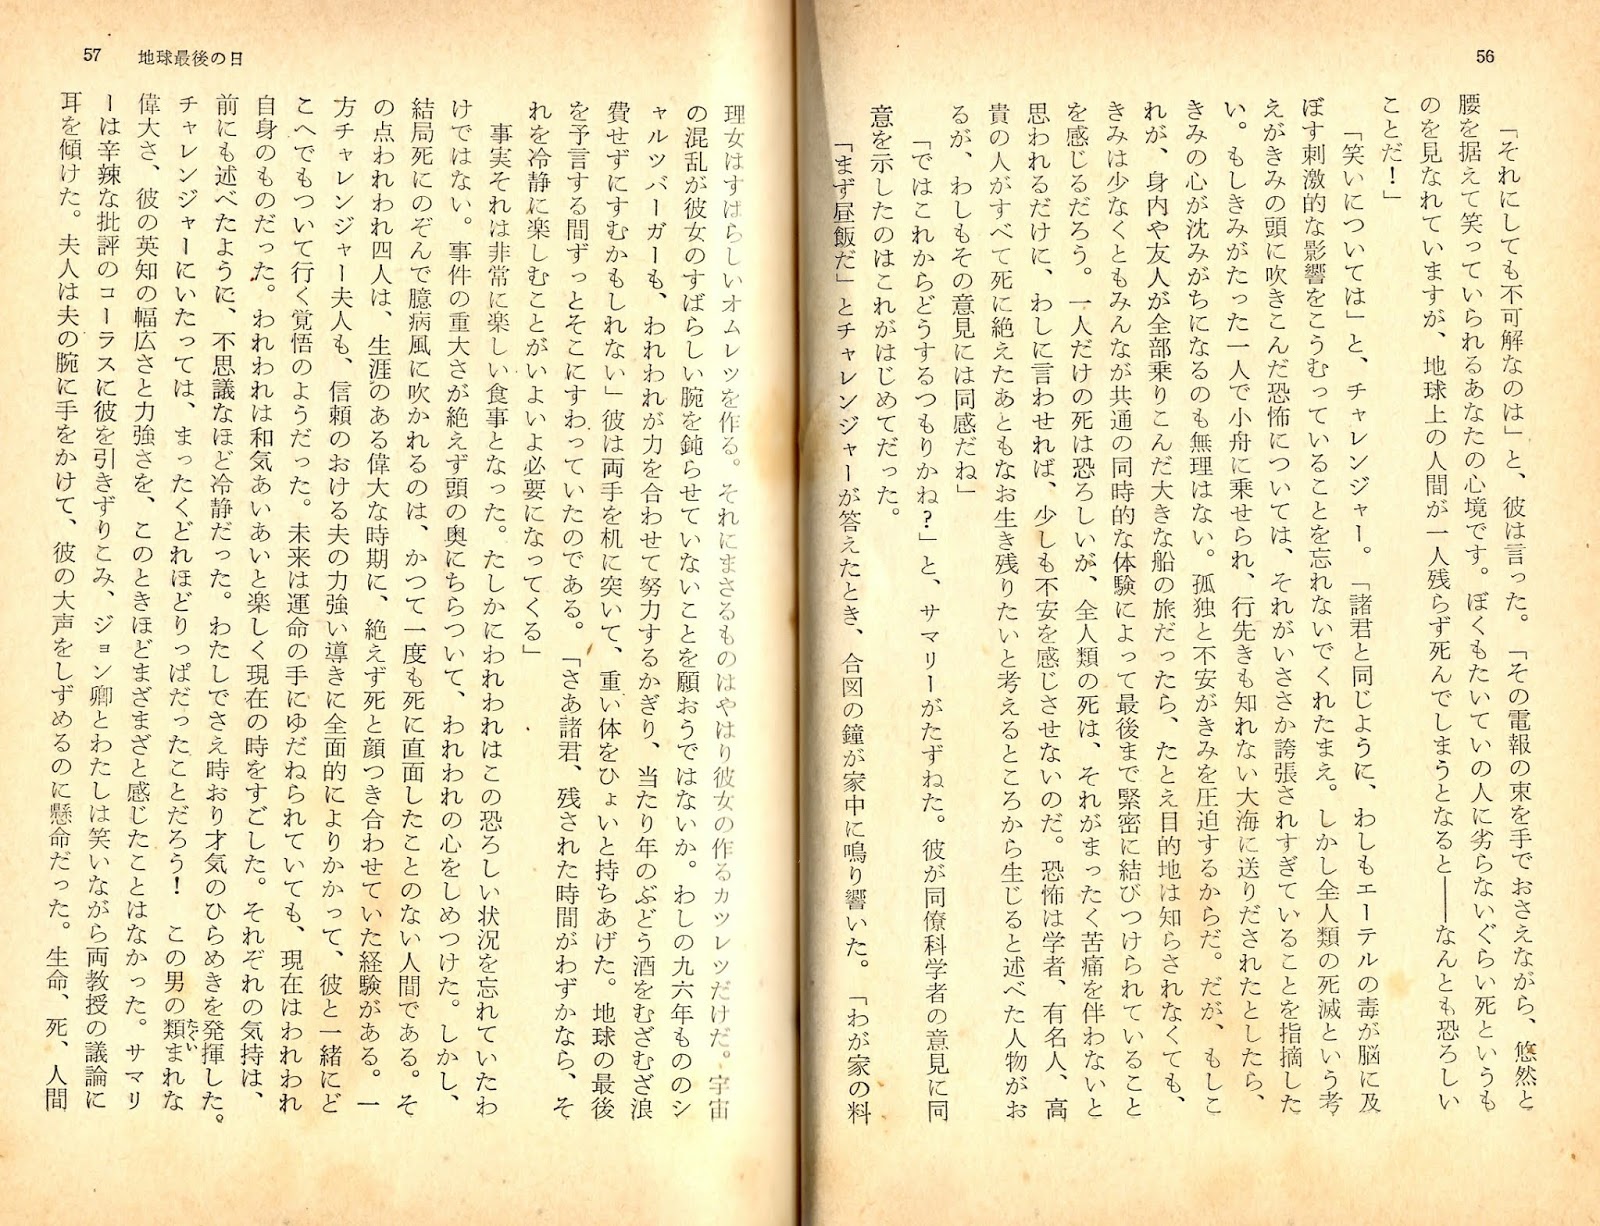 56
「それにしても不可解なのは」と、彼は言った。「その電報の束を手でおさえながら、悠然と
腰を据えて笑っていられるあなたの心境です。ぼくもたいていの人に劣らないぐらい死というも
のを見なれていますが、地球上の人間が一人残らず死んでしまうとなると――なんとも恐ろしい
ことだ！」
「笑いについては」と、チャレンジャー。「諸君と同じように、わしもエーテルの毒が脳に及
ぼす刺激的な影響をこうむっていることを忘れないでくれたまえ。しかし全人類の死滅という考
えがきみの頭に吹きこんだ恐怖については、それがいささか誇張されすぎていることを指摘した
い。もしきみがたった一人で小舟に乗せられ、行先きも知れない大海に送りだされたとしたら、
きみの心が沈みがちになるのも無理はない。孤独と不安がきみを圧迫するからだ。だが、もしこ
れが、身内や友人が全部乗りこんだ大きな船の旅だったら、たとえ目的地は知らされなくても、
きみは少なくともみんなが共通の同時的な体験によって最後まで緊密に結びつけられていること
を感じるだろう。一人だけの死は恐ろしいが、全人類の死は、それがまったく苦痛を伴わないと
思われるだけに、わしに言わせれば、少しも不安を感じさせないのだ。恐怖は学者、有名人、高
貴の人がすべて死に絶えたあともなお生き残りたいと考えるところから生じると述べた人物がお
るが、わしもその意見には同感だね」
「ではこれからどうするつもりかね？」と、サマリーがたずねた。彼が同僚科学者の意見に同
意を示したのはこれがはじめてだった。
「まず昼飯だ」とチャレンジャーが答えたとき、合図の鐘が家中に鳴り響いた。「わが家の料
57　地球最後の日
理女はすばらしいオムレツを作る。それにまさるものはやはり彼女の作るカツレツだけだ。宇宙
の混乱が彼女のすばらしい腕を鈍らせていないことを願おうではないか。わしの九六年もののシ
ャルツバーガーも、われわれが力を合わせて努力するかぎり、当たり年のぶどう酒をむざむざ浪
費せずにすむかもしれない」彼は両手を机に突いて、重い体をひょいと持ちあげた。地球の最後
を予言する間ずっとそこにすわっていたのである。「さあ諸君、残された時間がわずかなら、そ
れを冷静に楽しむことがいよいよ必要になってくる」
事実それは非常に楽しい食事となった。たしかにわれわれはこの恐ろしい状況を忘れていたわ
けではない。事件の重大さが絶えず頭の奥にちらついて、われわれの心をしめつけた。しかし、
結局死にのぞんで臆病風に吹かれるのは、かつて一度も死に直面したことのない人間である。そ
の点われわれ四人は、生涯のある偉大な時期に、絶えず死と顔つき合わせていた経験がある。一
方チャレンジャー夫人も、信頼のおける夫の力強い導きに全面的によりかかって、彼と一緒にど
こへでもついて行く覚悟のようだった。未来は運命の手にゆだねられていても、現在はわれわれ
自身のものだった。われわれは和気あいあいと楽しく現在の時をすごした。それぞれの気持は、
前にも述べたように、不思議なほど冷静だった。わたしでさえ時おり才気のひらめきを発揮した。
チャレンジャーにいたっては、まったくどれほどりっぱだったことだろう！　この男の類まれな
偉大さ、彼の英知の幅広さと力強さを、このときほどまざまざと感じたことはなかった。サマリ
ーは辛辣な批評のコーラスに彼を引きずりこみ、ジョン卿とわたしは笑いながら両教授の議論に
耳を傾けた。夫人は夫の腕に手をかけて、彼の大声をしずめるのに懸命だった。生命、死、人間